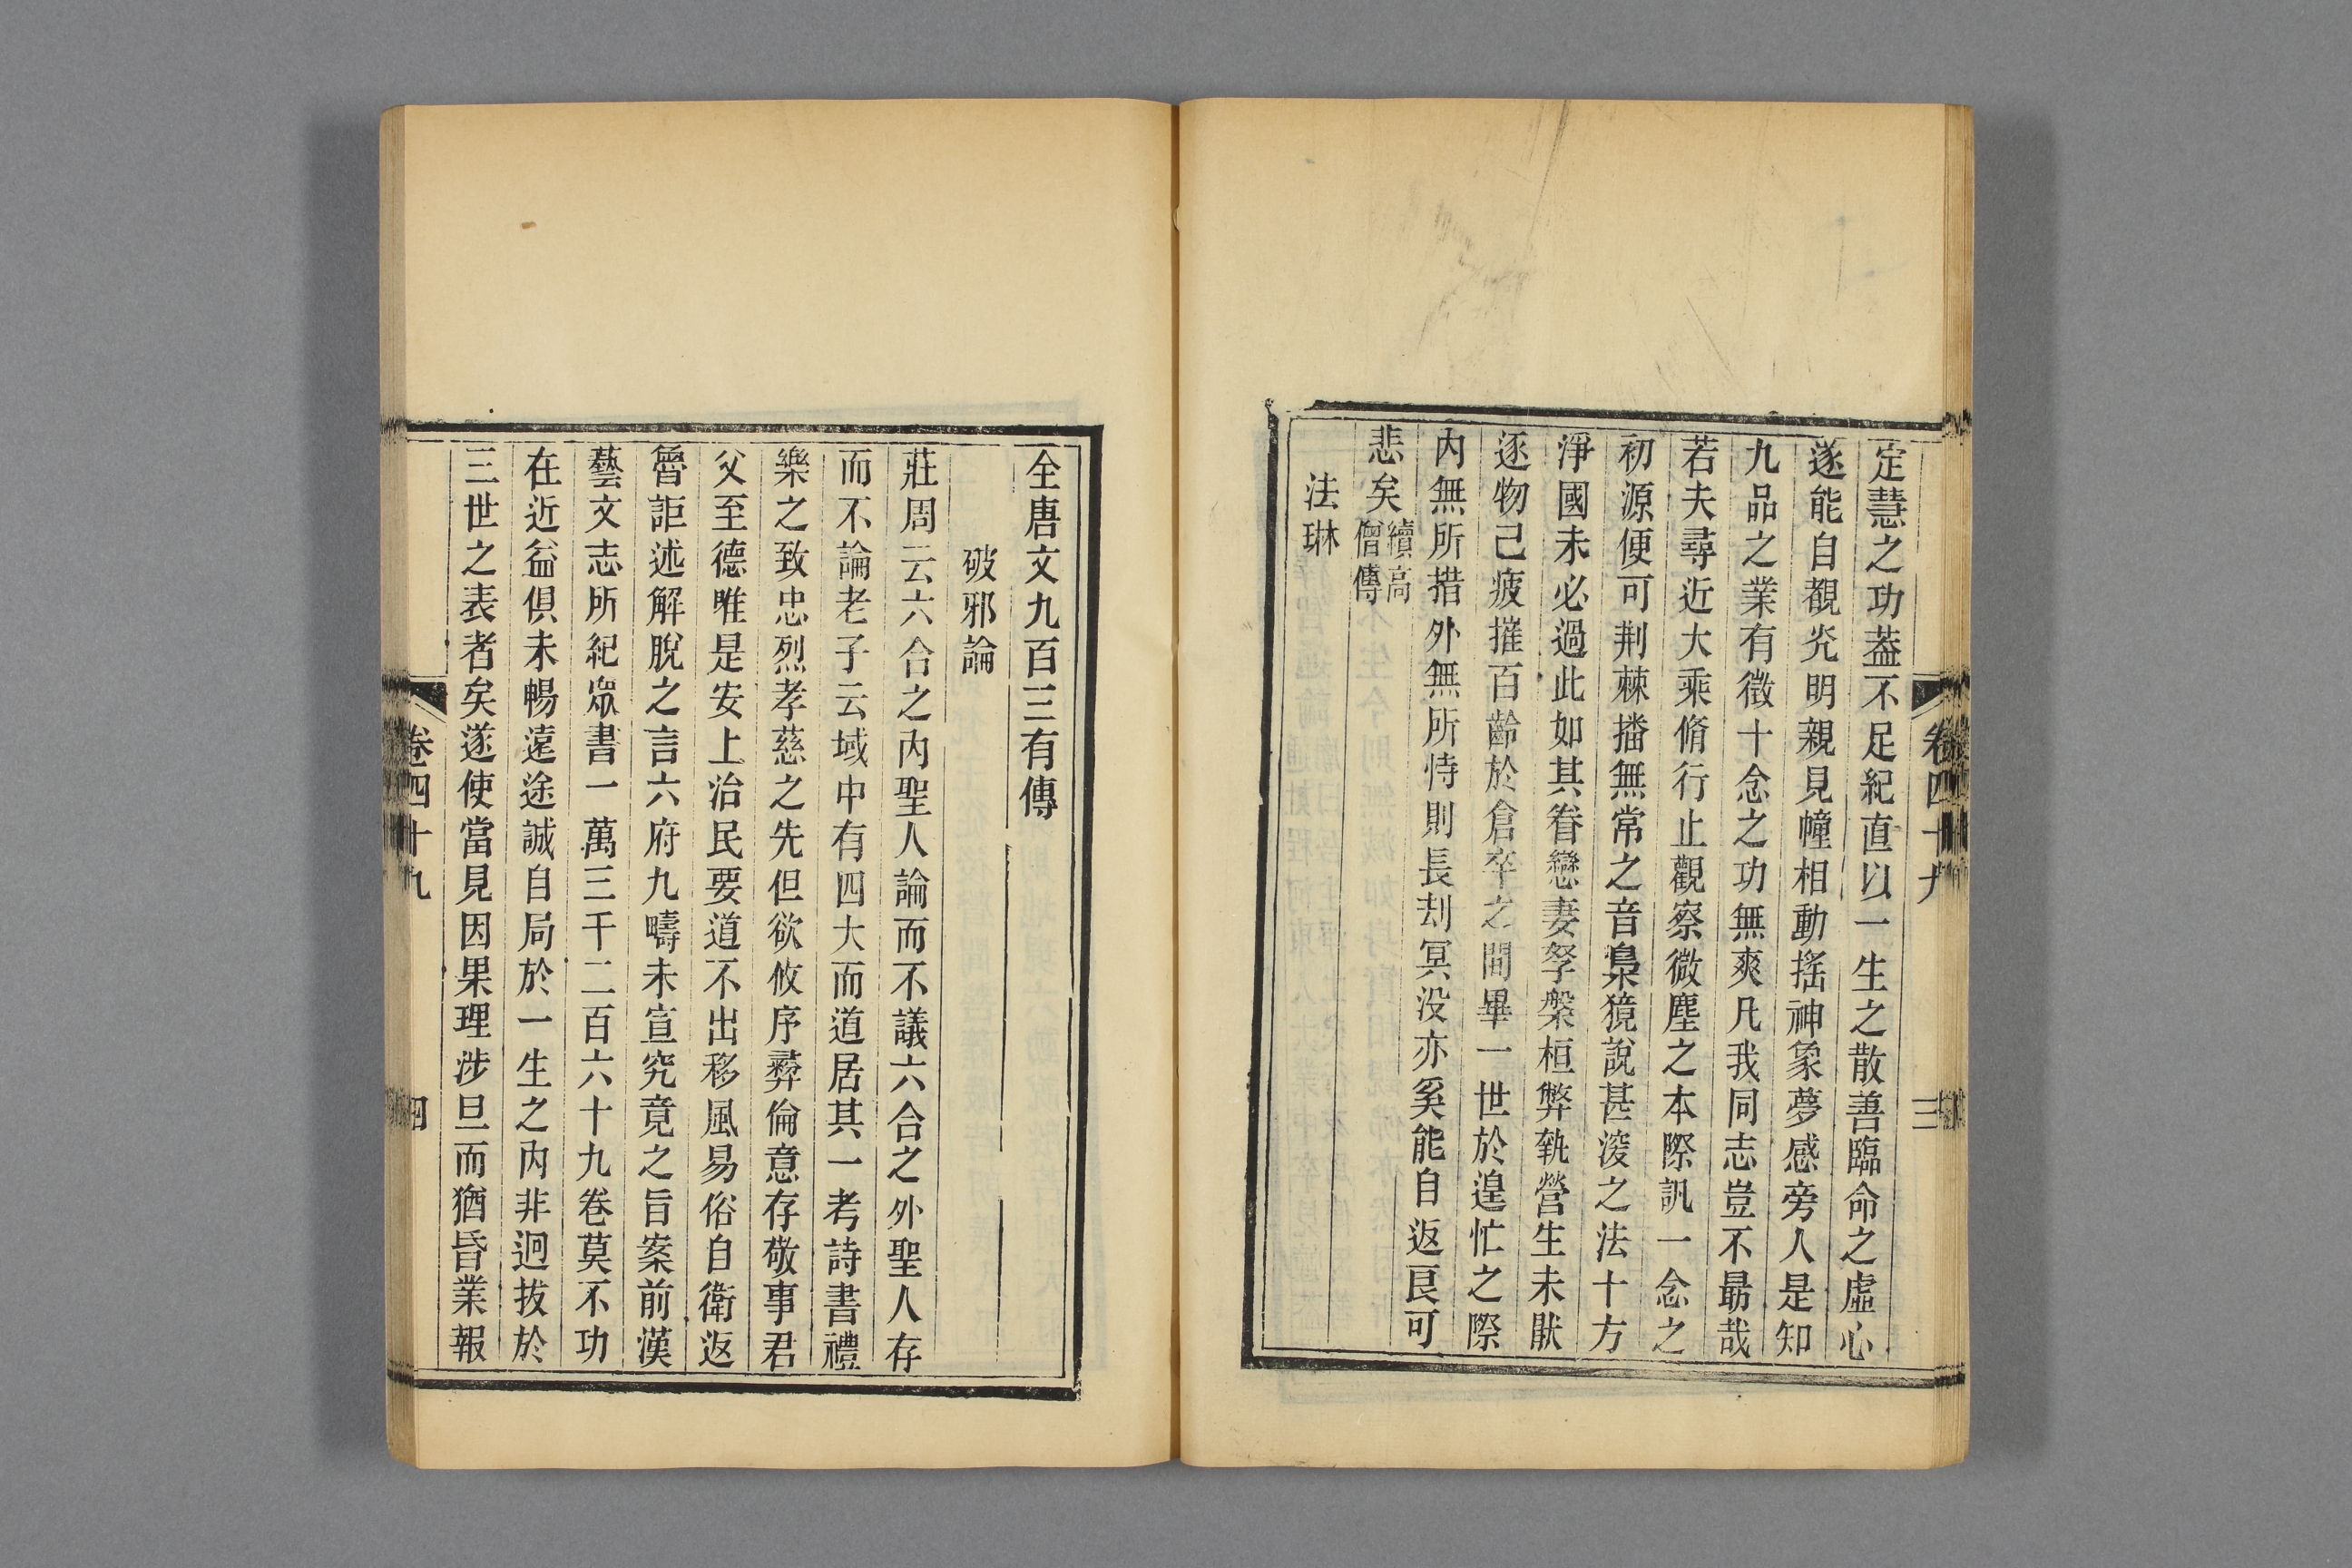 定慧之功葢不足紀直以一生之散善臨命之虛心
遂能自覩光明親見幢相動搖神象夢感旁人是知
九品之業有徵十念之功無爽凡我同志豈不勗哉
若夫尋近大乘脩行止觀察微塵之本際訊一念之
初源便可荆棘播無常之音梟獍說甚深之法十方
淨國未必過此如其眷戀妻孥槃桓弊執營生未猒
逐物己疲摧百齡於倉卒之間畢一世於遑忙之際
内無所措外無所恃則長刦冥没亦奚能自返良可
悲矣續高僧傳
法琳
卷四十九
三
全唐文九百三有傳
破邪論
莊周云六合之内聖人論而不議六合之外聖人存
而不論老子云域中有四大而道居其一考詩書禮
樂之致忠烈孝慈之先但欲攸序彝倫意存敬事君
父至德唯是安上治民要道不出移風易俗自衛返
魯詎述解脫之言六府九疇未宣究竟之旨案前漢
藝文志所紀眾書一萬三千二百六十九卷莫不功
在近益俱未暢遠途誠自局於一生之内非迥拔於
三世之表者矣遂使當見因果理涉旦而猶昏業報
卷四十九
四